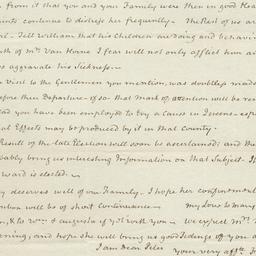 from it that you and your Family were then in good Hea
ints continue to distress her frequently. The Rest of us ar
al. Tell William that his Children are doing and behavi
th of Mr. Van Horne I fear will not only afflict him a
us aggravate his Sickness.
e Visit to the Gentlemen you mention, was doubtless made
efore their Departure. if so that mark of attention will be re
lad you have been employed to try a Cause in Queens
al Effects may be produced by it in that County.
Result of the late Election will soon be ascertained; and the
bably bring us interesting Information on that Subject
ward is elected.
y deserves well of our Family. I hope her confinement
ution will be of short Continuance. My Love to Mary
n, & to Wm. & Augusta if yet with you. We expect Mrs.
rning, and hope she will bring us good Tidings of you a
I am Dear Peter
your very affte.